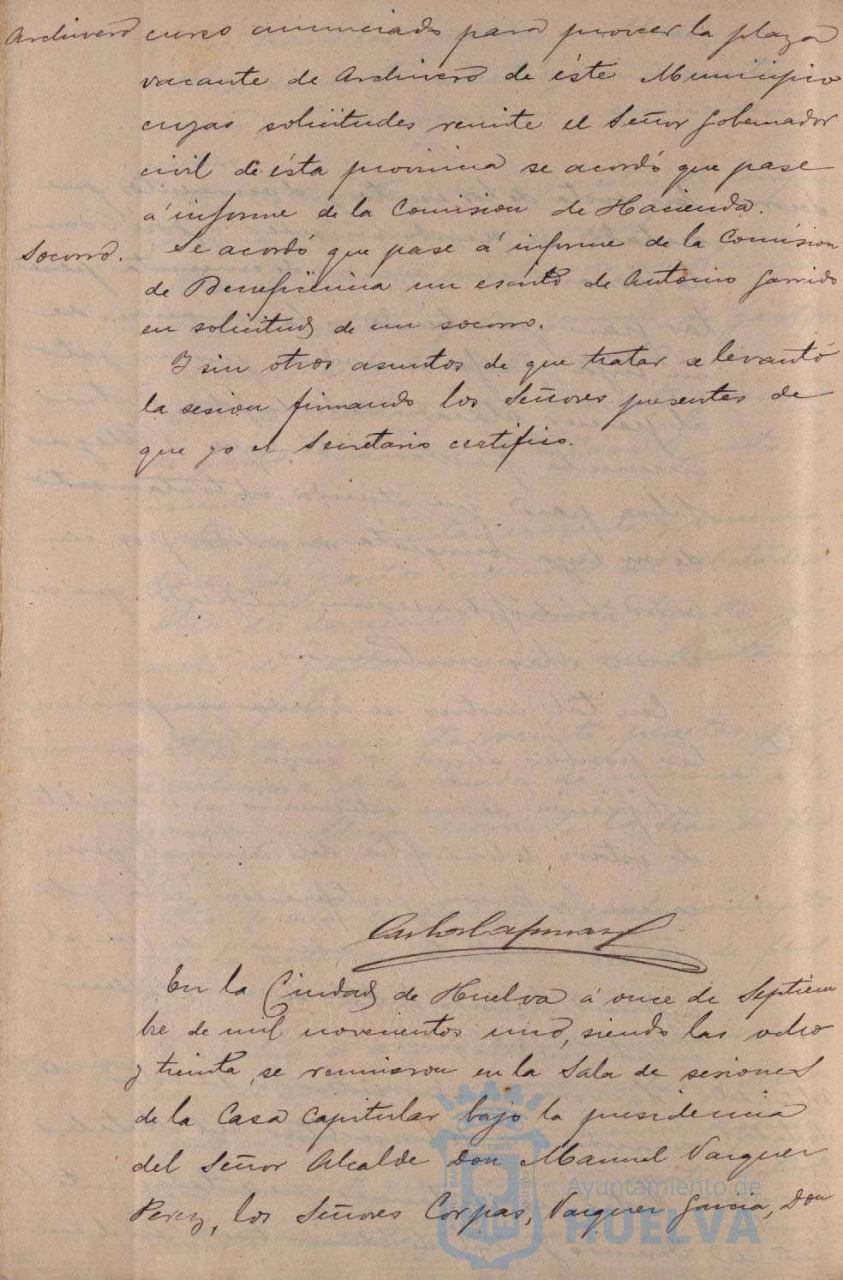 Archivero curso anunciado para proveer la plaza
vacante de Archivero de éste Municipio
cuyas solicitudes remite el Señor Gobernador
civil de ésta provincia se acordó que pase
á informe de la Comision de Hacienda.
Socorro. Se acordó que pase á informe de la Comision
de Beneficencia un escrito de Antonio Garrido
en solicitud de un socorro.
Y sin otros asuntos de que tratar se levantó
la sesion firmando los Señores presentes de
que yo el Secretario certifico.
Carlos
En la Ciudad de Huelva á once de Septiem
bre de mil novecientos uno, siendo las ocho
y treinta, se reunieron en la Sala de sesiones
de la Casa Capitular bajo la presidencia
del Señor Alcalde Don Manuel Vazquez
Perez, los Señores Corpas, Vazquez Garcia, Don
Ayuntamiento de
HUELVA